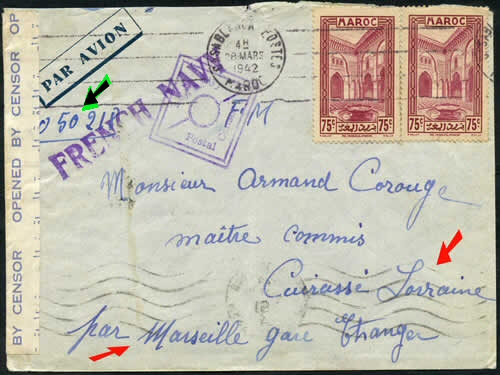 BY CENSOR OPENED BY CENSOR OP
PAR AVION
CASABLANCA POSTES
4H
28 MARS
1942
MAROC
MAROC
MAROC
75c
75c
FRENCH NAVY
Postal
F.M
Monsieur Armand Corouge
maître commis
Cuirassé Lorraine
par Marseille gare Etranger